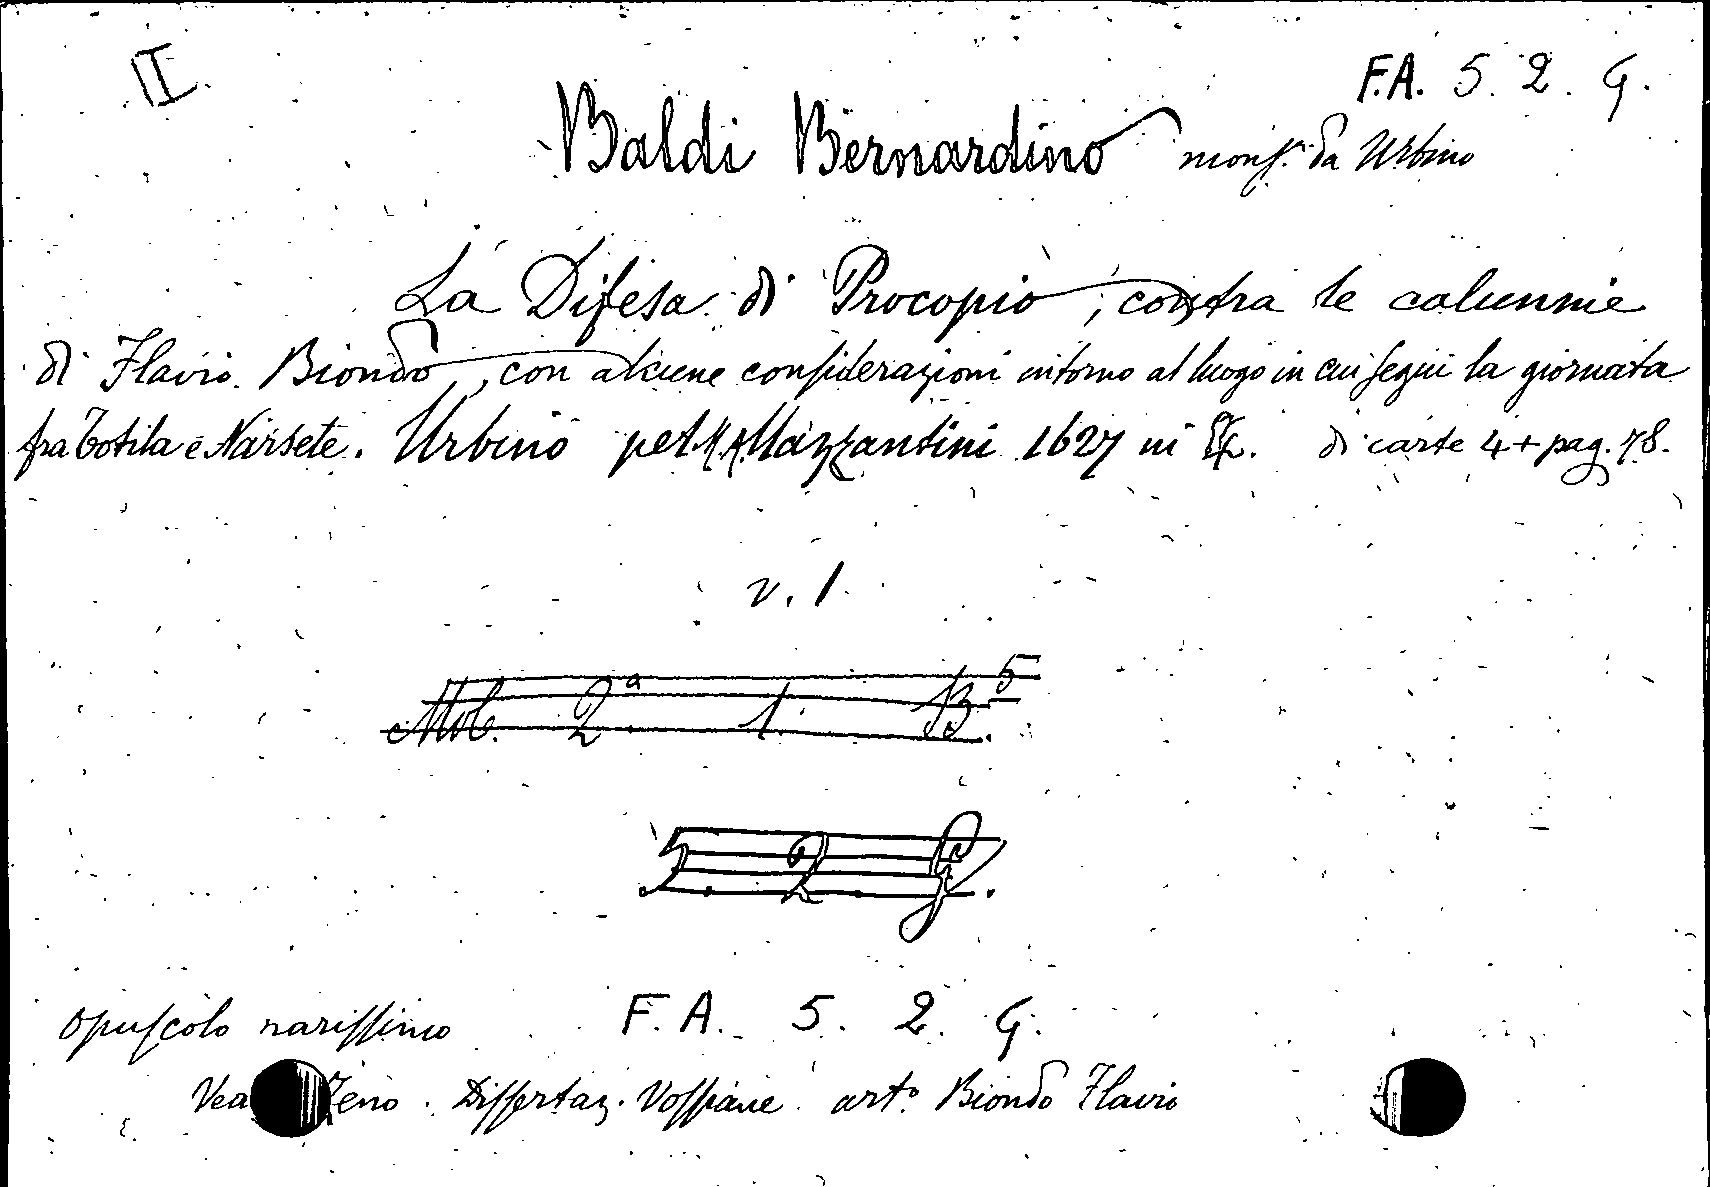 II
F.A. 5. 2. G.
Baldi Bernardino monsr. da Urbino
La Difesa di Procopio, contra le calunnie
di Flavio Biondo, con alcune considerazioni intorno al luogo in cui seguì la giornata
fra Totila e Narsete. Urbino per M.A. Mazzantini 1627 in di carte 4 + pag. 78.
v. 1.
Mob. 2a. 1. B. 5
5. 2. G.
Opuscolo rarissimo F. A. 5. 2. G.
Vea Zeno. Dissertaz. Vossiane arto. Biondo Flavio